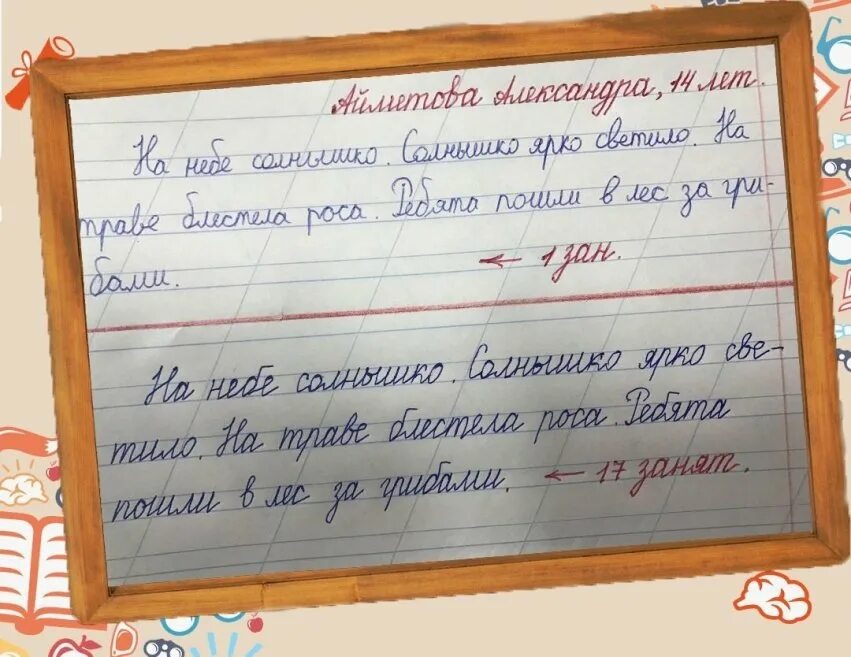 Айметова Александра, 14 лет.
На небе солнышко. Солнышко ярко светило. На
траве блестела роса. Ребята пошли в лес за гри-
бами.
← 1 зан.
На небе солнышко. Солнышко ярко све-
тило. На траве блестела роса. Ребята
пошли в лес за грибами. ← 17 занят.